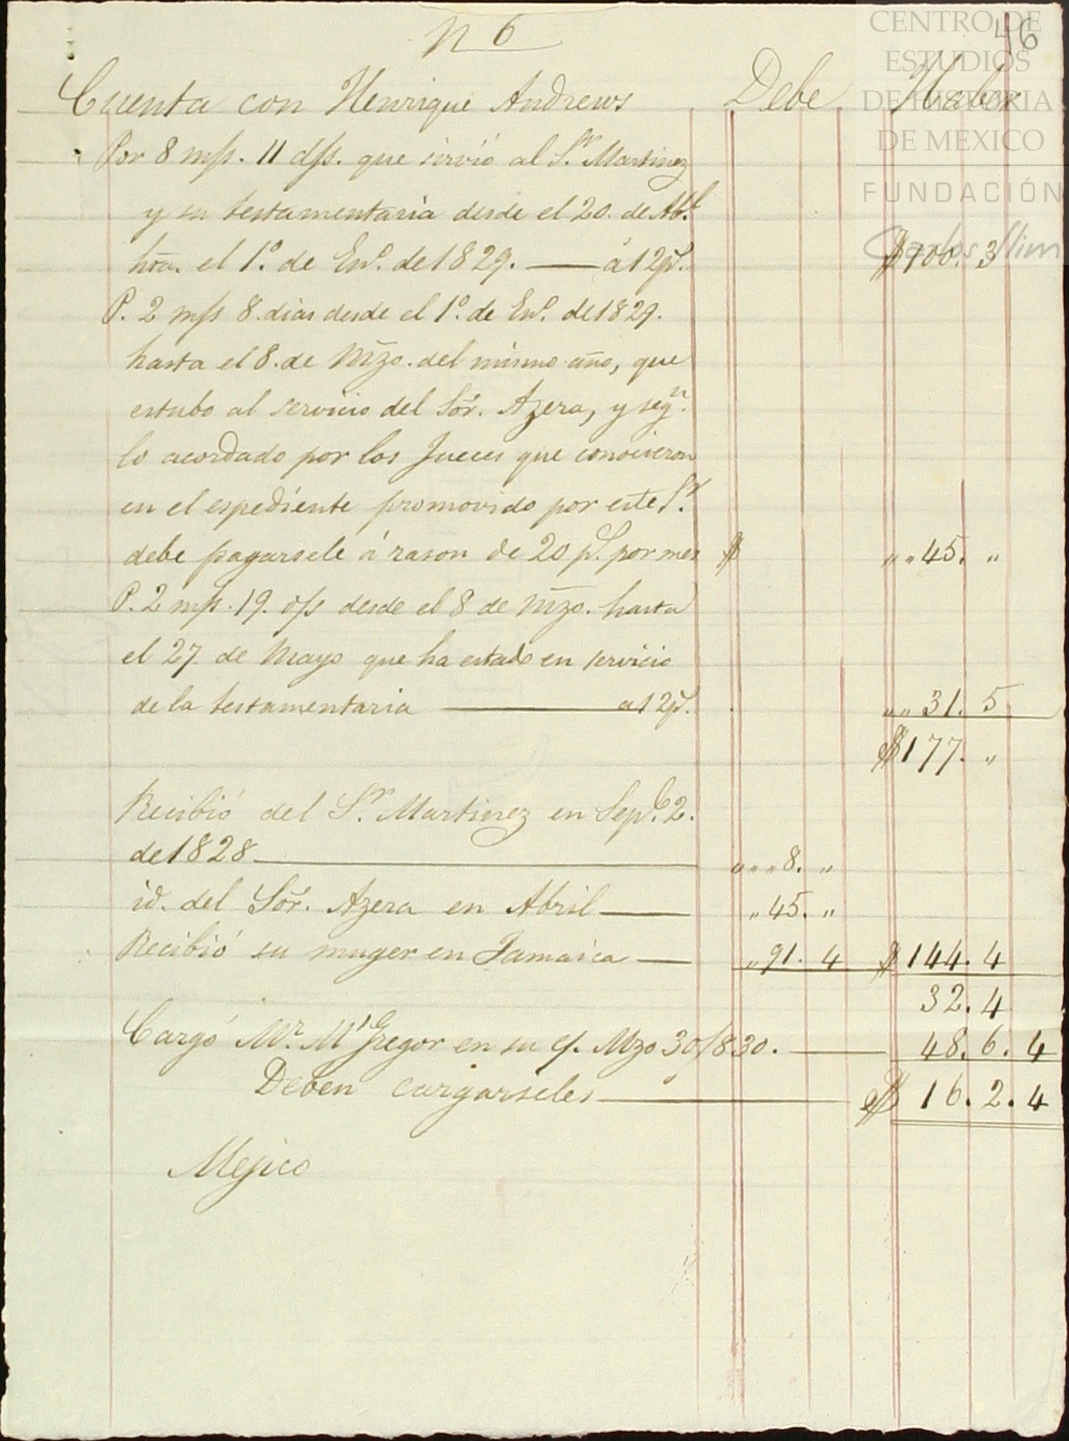 N 6
46
CENTRO DE
ESTUDIOS
DE HISTORIA
DE MEXICO
FUNDACIÓN
Carlos Slim
Cuenta con Henrique Andrews Debe Haber
Por 8 m/s. 11 d/s. que sirvió al S.r Martinez
y su testamentaria desde el 20. de Ab.l
hta. el 1.o de En.o de 1829. — á 12 p.s $100. 3
P. 2 m/s 8. dias desde el 1.o de En.o de 1829.
hasta el 8. de Mzo. del mismo año, que
estubo al servicio del Sör. Azera, y seg.n
lo acordado por los Jueces que conocieron
en el espediente promovido por este S.r
debe pagarsele á rason de 20 p.s por mes $ " " 45. "
P. 2 m/s. 19. d/s desde el 8 de Mzo. hasta
el 27 de Mayo que ha estado en servicio
de la testamentaria — a 12 p.s " " 31. 5
$177. "
Recibió del S.r Martinez en Sep.e 2.
de 1828 — " " " 8. "
id. del Sör. Azera en Abril — " 45. "
Recibió su muger en Jamaica — " 91. 4 $ 144. 4
32. 4
Cargó Mr. M'Gregor en su c/. Mzo 30/830. — 48. 6. 4
Deben cargarseles — $ 16. 2. 4
Mejico